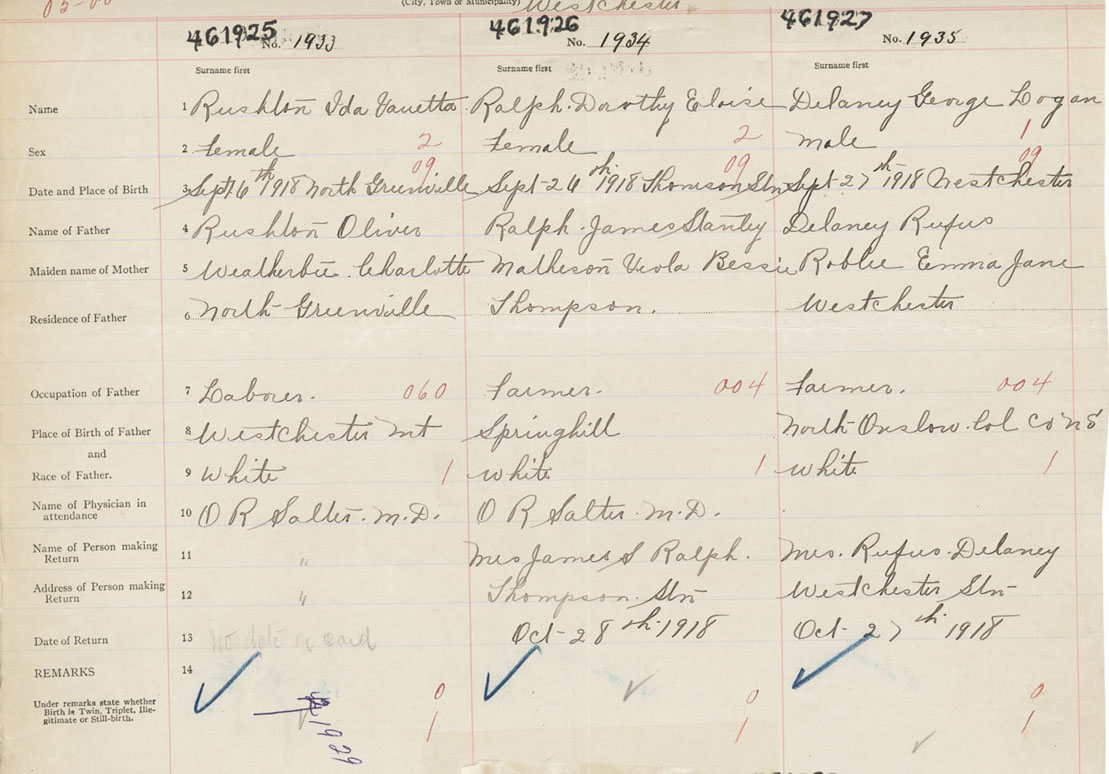 (City, Town or Municipality) Westchester
461925 461926 461927
No. 1933 No. 1934 No. 1935
Surname first Surname first Surname first
Name 1 Rushton Ida Vauetta Ralph. Dorothy Eloise Delaney George Logan
Sex 2 Female 2 Female 2 Male 1
09 09 09
Date and Place of Birth 3 Sept 6th 1918 North Greenville Sept-26th 1918 Thomson Stn Sept-27th 1918 Westchester
Name of Father 4 Rushton Oliver Ralph. James Stanley Delaney Rufus
Maiden name of Mother 5 Weatherbie. Charlotte Matheson Viola Bessie Roblee Emma Jane
Residence of Father 6 North Greenville Thompson. Westchester
Occupation of Father 7 Laborer. 060 Farmer. 004 Farmer. 004
Place of Birth of Father 8 Westchester Mt Springhill North Onslow. Col Co NS
and
Race of Father. 9 White 1 White 1 White 1
Name of Physician in attendance 10 O R Salter. M.D. O R Salter. M.D.
Name of Person making Return 11 " Mrs James S Ralph. Mrs. Rufus. Delaney
Address of Person making Return 12 " Thompson. Stn Westchester Stn
Date of Return 13 No date on card Oct-28th 1918 Oct-27th 1918
REMARKS 14
Under remarks state whether
Birth is Twin, Triplet, Ille-
gitimate or Still-birth.
0 0 0
1 1 1
1929